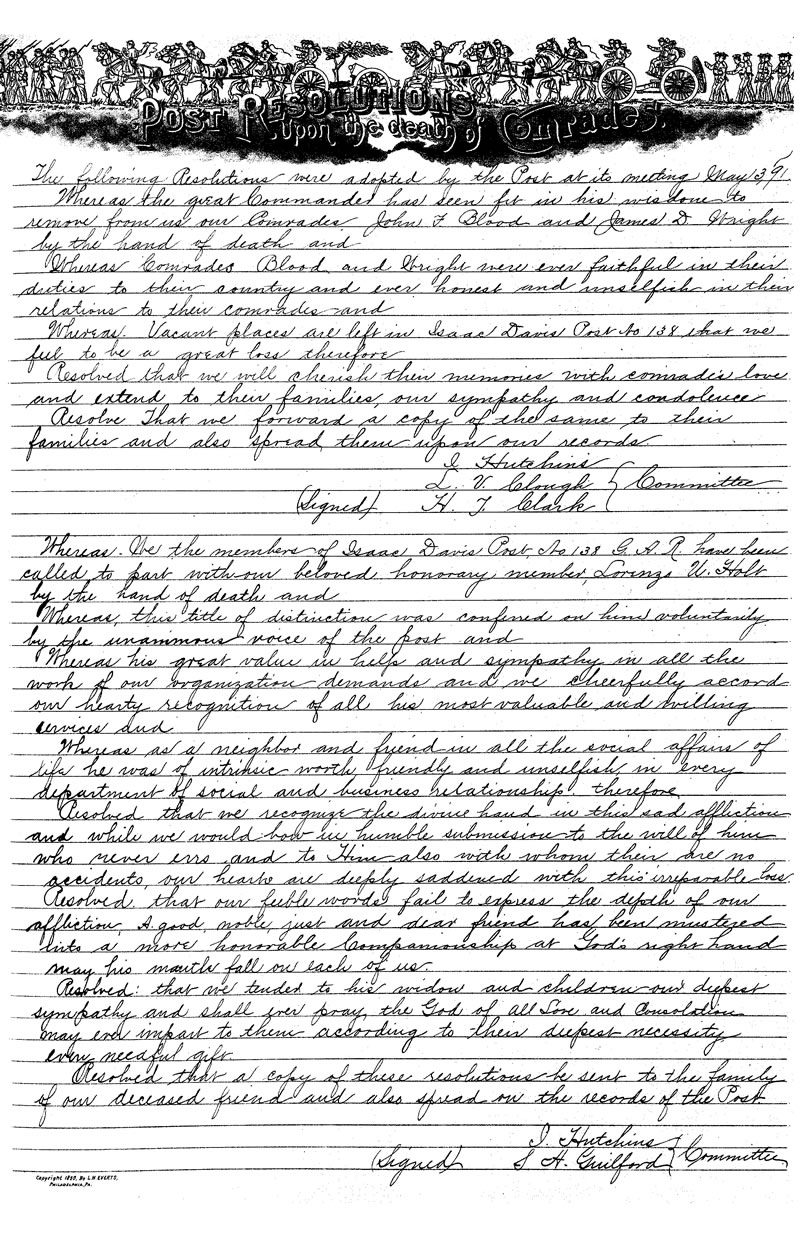 POST RESOLUTIONS
Upon the death of Comrades.
The following Resolutions were adopted by the Post at its meeting May 13, 91.
Whereas the great Commander has seen fit in his wisdone to
remove from us our Comrades John F Blood and James D. Wright
by the hand of death and
Whereas Comrades Blood and Wright were ever faithful in their
duties to their country and ever honest and unselfish in their
relations to their comrades and
Whereas. Vacant places are left in Isaac Davis Post No 138 that we
feel to be a great loss therefore
Resolved that we will cherish their memories with comrade's love
and extend to their families, our sympathy and condolence
Resolve That we forward a copy of the same to their
families and also spread them upon our records.
I. Hutchins
L. V. Clough
(Signed) H. T. Clark } Committee
Whereas. We the members of Isaac Davis Post No 138 G. A. R. have been
called to part with our beloved honorary member, Lorenzo U. Holt
by the hand of death and
Whereas, this title of distinction was confered on him voluntarily
by the unanimous voice of the post and
Whereas his great value in help and sympathy in all the
work of our organization demands and we cheerfully accord
our hearty recognition of all his most valuable and willing
services and
Whereas as a neighbor and friend in all the social affairs of
life he was of intrinsic worth, friendly and unselfish in every
department of social and business relationship. therefore,
Resolved that we recognize the divine hand in this sad affliction
and while we would bow in humble submission to the will of him
who never errs and to Him also with whom their are no
accidents, our hearts are deeply saddened with this irreparable loss.
Resolved, that our feeble words fail to express the depth of our
affliction, A good, noble, just and dear friend has been mustered
into a more honorable Companionship at God's right hand
may his mantle fall on each of us.
Resolved: that we tender to his widow and children our deepest
sympathy and shall ever pray, the God of all Love and Consolation
may ever impart to them according to their deepest necessity
every needful gift
Resolved that a copy of these resolutions be sent to the family
of our deceased friend and also spread on the records of the Post.
I. Hutchins
(Signed) S. H. Guilford } Committee
Copyright By L. H. EVERTS,
PHILADELPHIA, PA.